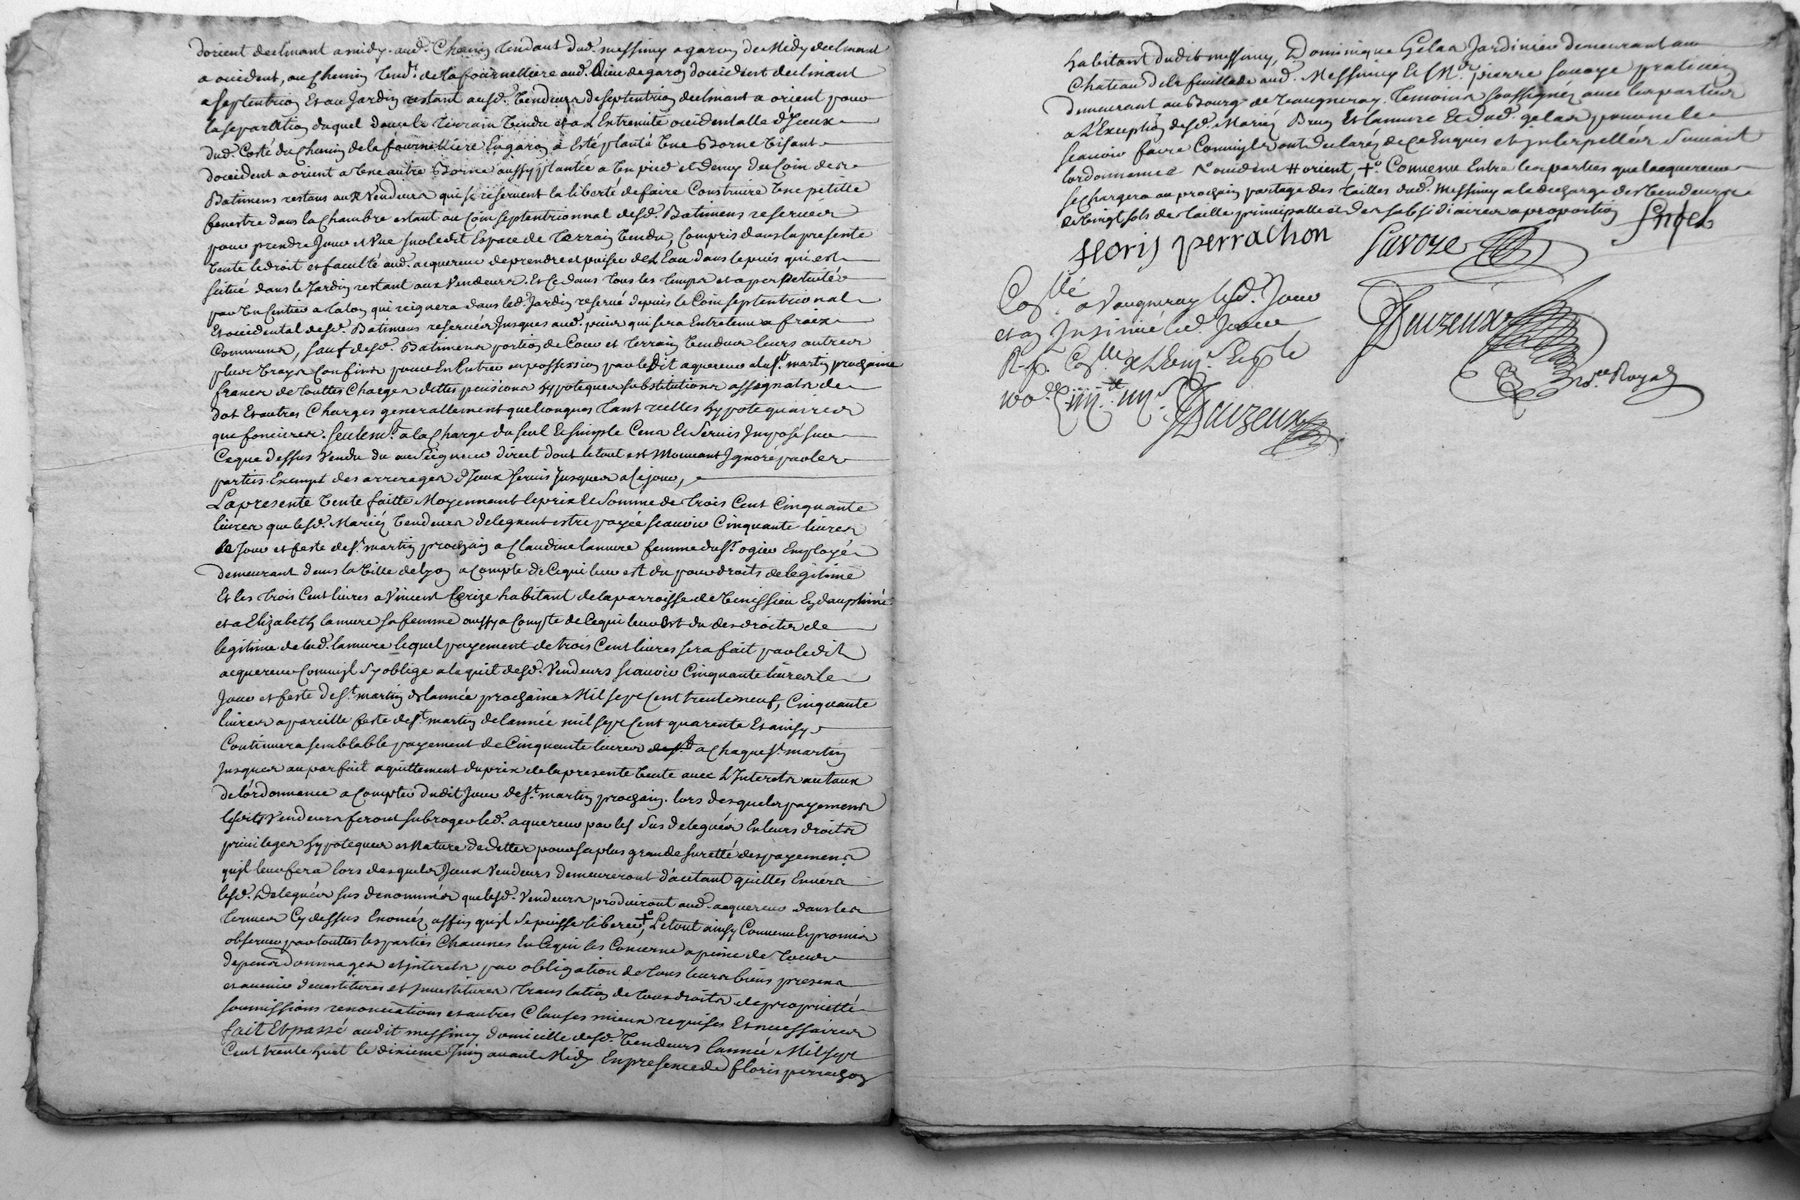 dorient declinant a midy. aud. Chemin tendant dud. messimy a garon de Midy declinant
a occident, au Chemin tend.t de la fournelliere aud. lieu de garon doccident declinant
a septentrion Et au Jardin restant ausd. Vendeurs de septentrion declinant a orient pour
la separation duquel davec le terrain vendu et a L'Extremité occidentalle d'Iceux
dud. Costé du Chemin de la fournelliere En garon a Esté planté Une Borne Visant
doccident a orient a Une autre Borne aussy plantée a Un pied et demy du Coin des
Batimens restans aux Vendeurs qui se reservent la liberté de faire Construire Une petitte
fenestre dans la Chambre estant au Coin septentrionnal desd. Batimens reservés
pour prendre Jour et Vue sur ledit Espace de terrain Vendu, Compris dans la presente
Vente le droit et faculté aud. acquereur de prendre et puiser de L'Eau dans le puis qui est
scitué dans le Jardin restant aux Vendeurs. Et Ce dans tous les temps et a perpetuité
par Un Centier a talon qui reignera dans led. Jardin reservé depuis le Coin septentrional
Et occidental desd. Batimens reservés Jusques aud. puis qui sera Entretenu a fraix
Communs, sauf desd. Batimens portion de Cour et terrain Vendus leurs autres
plus Vrays Confins pour En Entrer en possession par ledit acquereur a la st. martin prochaine
francs de touttes Charges dettes pensions hypoteques substitutions assegnats de
dot Et autres Charges generallement quelconques tant reelles hypotequaires
que foncieres. seulem.t a la Charge du seul Et simple Cens Et servis Imposé sur
Ce que dessus Vendu du au seigneur direct dont le tout est Mouvant Ignoré par les
parties Exempt des arrerages d'Iceux servis Jusques a Ce jour,
La presente Vente faitte Moyennant le prix Et Somme de trois Cent Cinquante
livres que lesd. Mariés Vendeurs deleguent estre payée scavoir Cinquante livres
le Jour et feste de st. martin prochain a Claudine lamure femme du sr. ogier Employé
demeurant dans la Ville de lyon a Compte de Ce qui leur est du pour droits de legitime
Et les trois Cent livres a Vincent Cerize habitant de la parroisse de Venissieu En dauphiné
et a Elizabeth lamure sa femme aussy a Compte de Ce qui leur Est du des droits de
legitime de lad. lamure lequel payement de trois Cent livres sera fait par ledit
acquereur Comme il s'y oblige a l'aquit desd. Vendeurs scavoir Cinquante livres le
Jour et feste de st. martin de lannée prochaine Mil sept Cent trente neuf, Cinquante
livres a pareille feste de st. martin de lannée mil sept Cent quarente Et ainsy
Continuera semblable payement de Cinquante livres a Chaque st. martin
Jusques au parfait aquittement du prix de la presente Vente avec L'Interets au taux
de l'ordonnance a Compter dudit Jour de st. martin prochain. lors desquels payements
lesdits Vendeurs feront subroger led. aquereur par les sus delegués En leurs droits
privileges hypoteques et Nature de dettes pour sa plus grande suretté des payemens
qu'jl leur fera lors desquels Jceux Vendeurs demeureront d'autant quittes Envers
lesd. delegués sus denommés que lesd. Vendeurs produiront aud. acquereur dans les
termes Cy dessus Enoncés affin qu'jl se puisse liberer, +° Le tout ainsy Convenu Et promis
observer par touttes les parties Chacunes En Ce qui les Concerne a peine de tous
depens dommages et interets par obligation de tous leurs biens presens
et avenir devestitures et jnvestitures translation de tous droits de proprietté
soumissions renonciations et autres Clauses mieux requises Et necessaires
fait Et passé audit messimy domicille desd. Vendeurs lannée Mil sept
Cent trente huit le dixieme Juin avant Midy En presence de floris perrachon
habitant dudit messimy, Dominique Gelas Jardinier demeurant au
Chateau de la feuillade aud. Messimy Et Mr. pierre savoye praticien
demeurant au Bourg de Vaugneray. temoins soussignez avec les parties
a L'Exception desd. Mariés Brun Et lamure Et dud. gelas pour ne le
scavoir faire Comme jls ont declarés de Ce Enquis et jnterpellés suivant
lordonnance occident # orient, +° Convenu Entre les parties que lacquereur
se chargera au prochain partage des tailles dud. Messimy a la decharge des Vendeurs
de Vingt sols de taille principalle et des subsidiaires a proportion
floris perrachon Savoye
Coll.é a Vaugneray led. Jour
et an Insinué led. Jour
Deuzeux
N.re Royal
Deuzeux